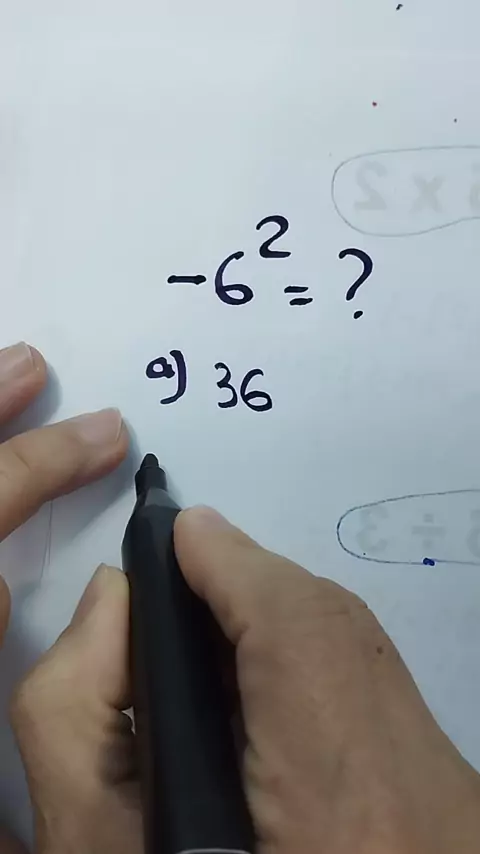 -6² = ?
a) 36